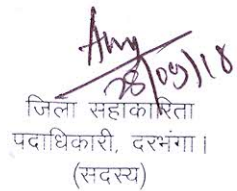 28/09/18
जिला सहाकारिता
पदाधिकारी, दरभंगा।
(सदस्य)